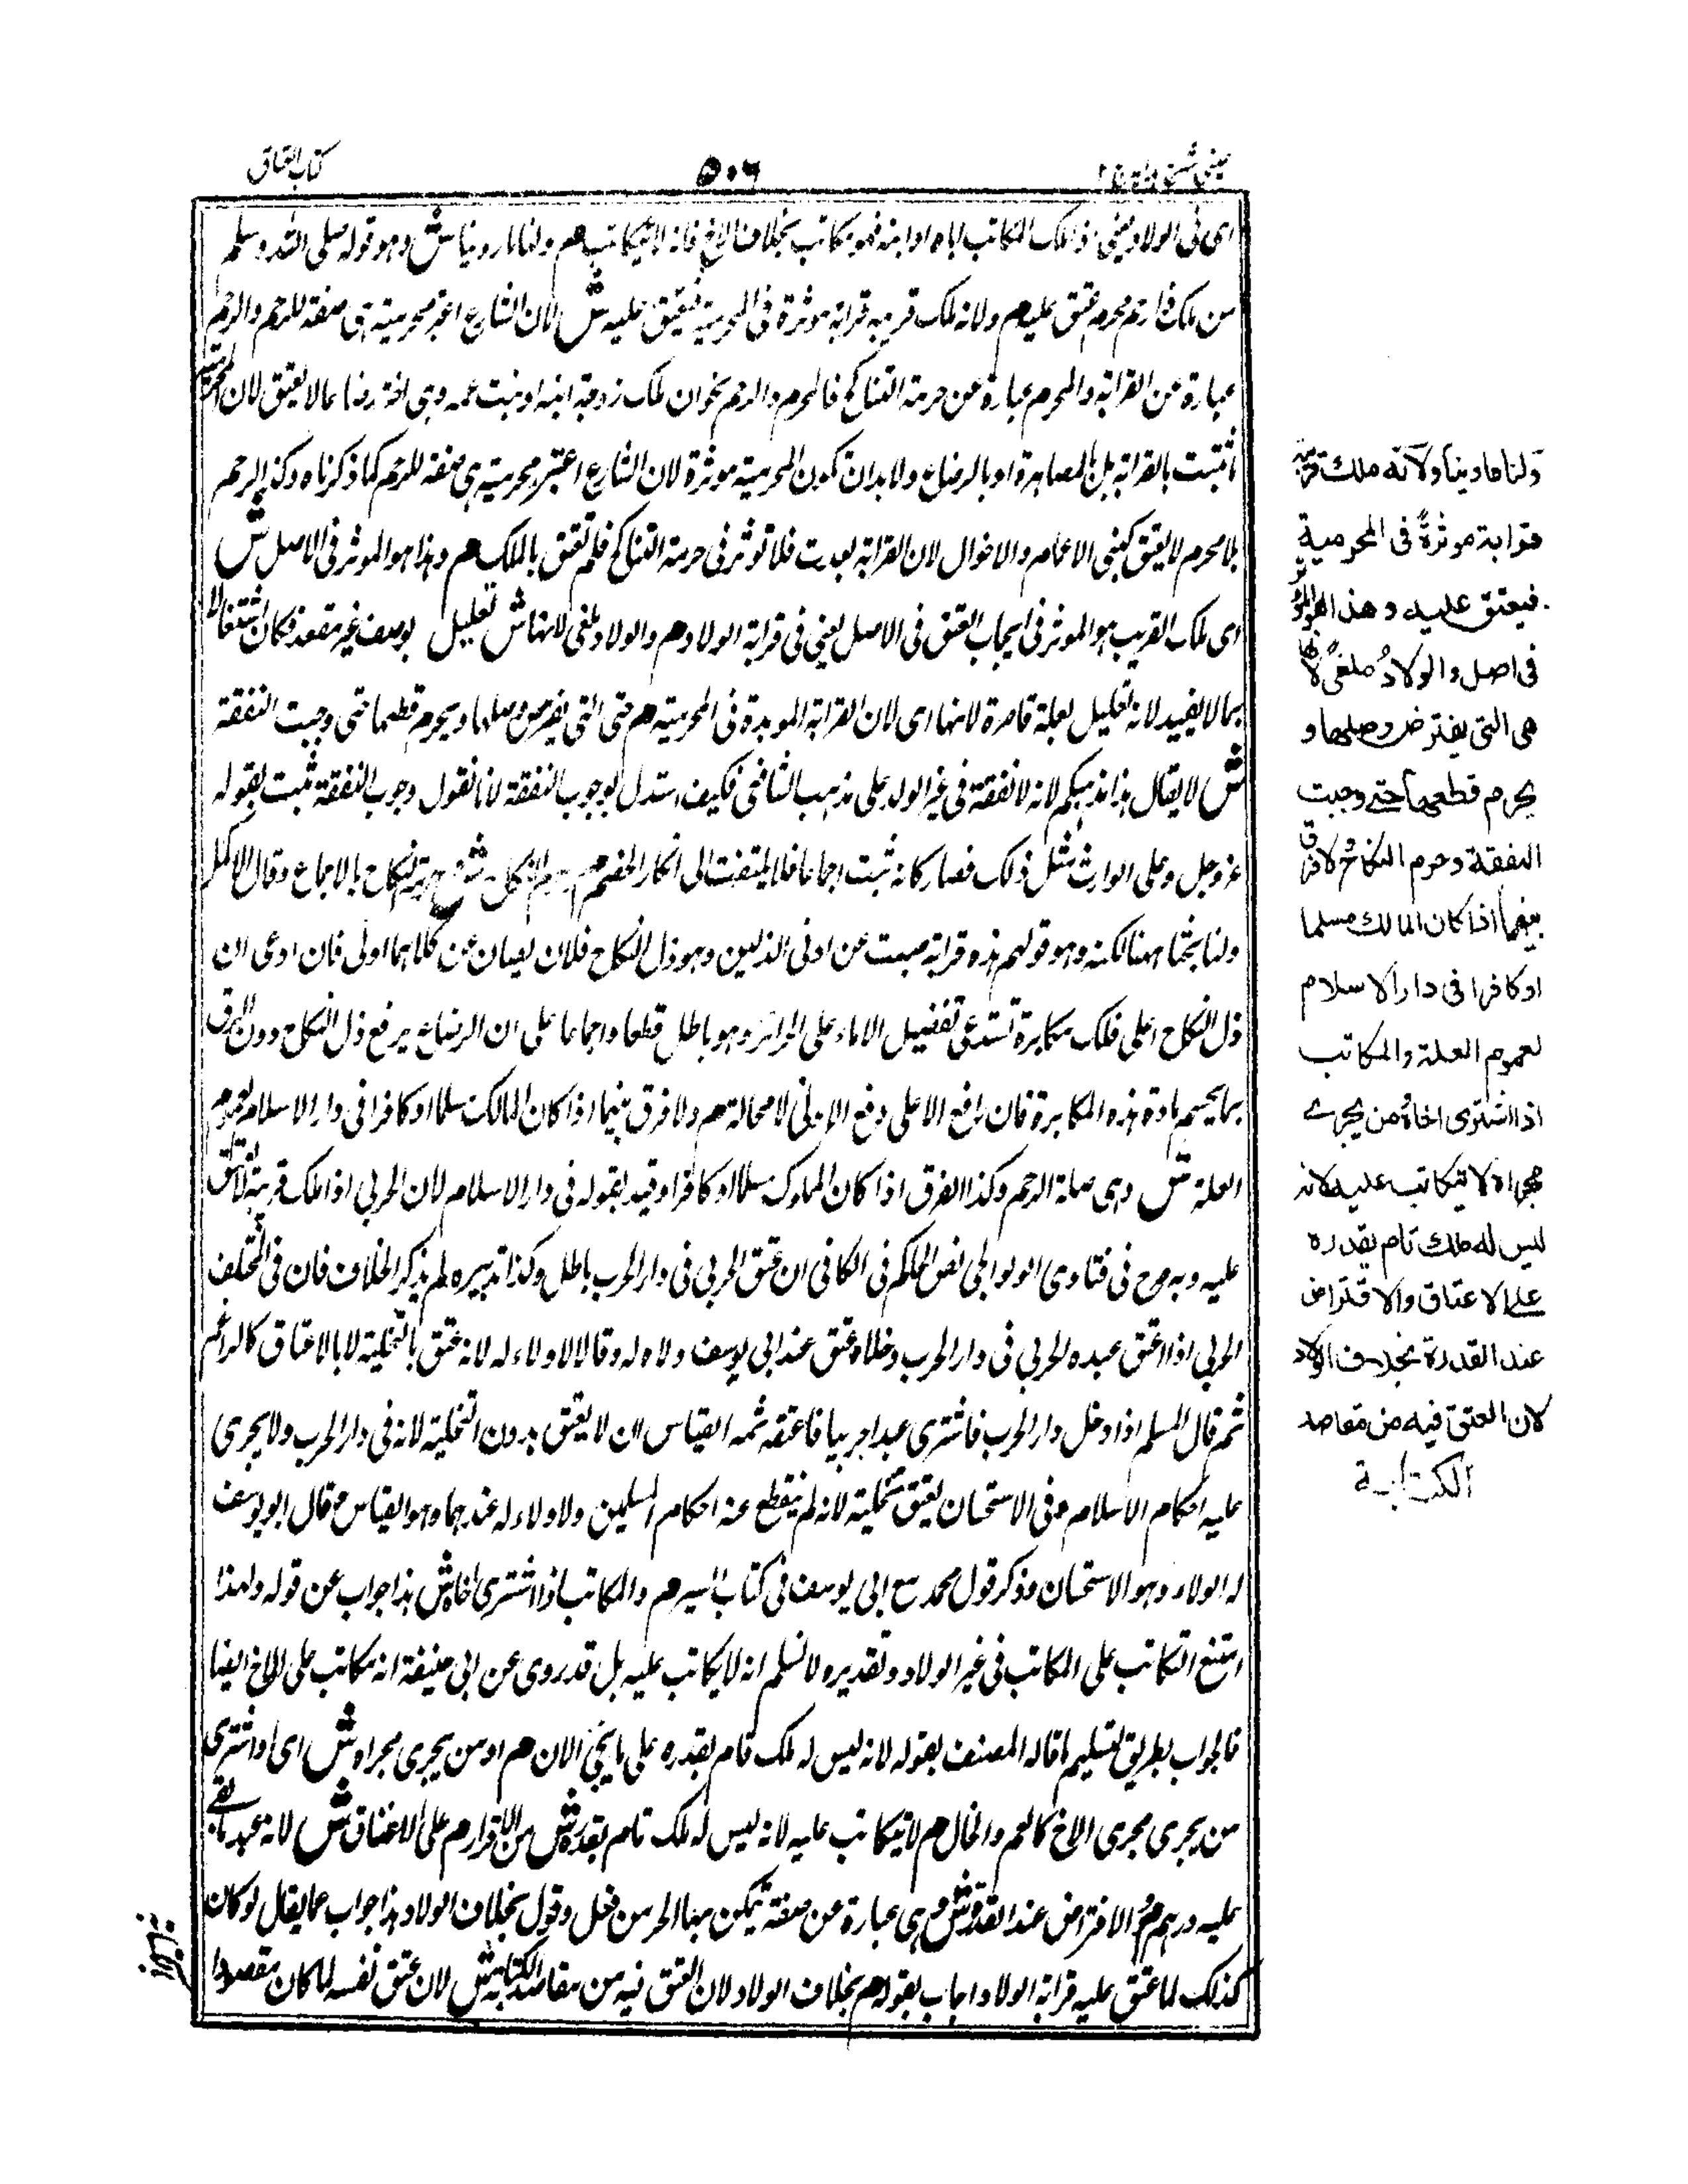 كتاب العتاق
٥٠٦
عينى شرح هداية
اى فى الولاد يعنى اذا ملك المكاتب اباه او ابنه فهو يكاتب بخلاف الاخ فانه لا يتكاتب هم ولنا ما روينا ش وهو قوله صلى الله وسلم
من ملك ذا رحم محرم عتق عليه م ولانه ملك قريبه قرابة موثرة فى المحرمية فيعتق عليه ش لان الشارع اعتبر محرمية هى صفة للرحم والرحم
عبارة عن القرابة والمحرم عبارة عن حرمة التناكح فالمحرم والرحم نحو ان ملك زوجة ابنه او بنت عمه وهى اخته رضاعا لا يعتق لان المحرمية
ما ثبتت بالقرابة بل بالمصاهرة او بالرضاع ولا بد ان تكون المحرمية موثرة لان الشارع اعتبر محرمية هى صفة للرحم كما ذكرناه وكذا الرحم
بلا محرم لا يعتق كبنى الاعمام والاخوال لان القرابة بعدت فلا توثر فى حرمة التناكح فلم تعتق بالملك هم وهذا هو الموثر فى الاصل ش
اى ملك القريب هو الموثر فى ايجاب العتق فى الاصل يعنى فى قرابة الولاد هم والولاد ملغى لانها ش تعليل بوصف غير مقصد فكان اشتغالا
بما لا يفيد لانه تعليل بعلة قاصرة لانها اى لان القرابة الموبدة فى المحرمية هم حتى التى يفترض وصلها ويحرم قطعها حتى وجبت النفقة
ش لا يقال هذا مذهبكم لانه لا نفقة فى غير الولد على مذهب الشافعى فكيف استدل بوجوب النفقة لانا نقول وجوب النفقة ثبت بقوله
عز وجل وعلى الوارث مثل ذلك فصار كانه ثبت اجماعا فلا يلتفت الى انكار الخصم هم وحرم النكاح ش حرمة النكاح بالاجماع وقال الاكمل
ولنا بحثا ههنا لكنه وهو قولهم هذه قرابة صينت عن ادنى الذلين وهو ذل النكاح فلان يصان عن كلاهما اولى فان ادعى ان
ذل النكاح اعلى فلك مكابرة تستدعى تفضيل الاماء على الحرائر وهو باطل قطعا واجماعا على ان الرضاع يرفع ذل النكاح دون الرق
بما يحسم مادة هذه المكابرة فان رافع الاعلى رفع الادنى لا محالة هم ولا فرق بينهما اذا كان المالك مسلما او كافرا فى دار الاسلام لعموم
العلة ش وهى صلة الرحم وكذا الفرق اذا كان المملوك مسلما او كافرا وقيد بقوله فى دار الاسلام لان الحربى اذا ملك قريبه لا يعتق
عليه وبه صرح فى فتاوى الولوالجى نص الحاكم فى الكافى ان عتق الحربى فى دار الحرب باطل وكذا تدبيره لم يذكر الخلاف فان فى المختلف
الحربى اذا اعتق عبده الحربى فى دار الحرب وخلاه عتق عند ابى يوسف ولاه له وقالا لا ولاء له لانه عتق بالتخلية لا بالاعتاق كالمراغم
ثم قال المسلم اذا دخل دار الحرب فاشترى عبدا حربيا فاعتقه ثمه القياس ان لا يعتق بدون التخلية لانه فى دار الحرب ولا يجرى
عليه احكام الاسلام وفى الاستحسان يعتق تخلية لانه لم ينقطع عنه احكام المسلمين ولا ولاء له عندهما وهو القياس وقال ابو يوسف
له الولاء وهو الاستحسان وذكر قول محمد مع ابى يوسف فى كتاب السير هم والمكاتب اذا اشترى اخاه ش هذا جواب عن قوله ولهذا
امتنع التكاتب على المكاتب فى غير الولاد وتقديره لا نسلم انه لا يكاتب عليه بل قد روى عن ابى حنيفة انه يكاتب على الاخ ايضا
فالجواب بطريق التسليم ما قاله المصنف بقوله لانه ليس له ملك تام يقدره على ما يجئ الان هم او من يجرى مجراه ش اى او اشترى
من يجرى مجرى الاخ كالعم والخال هم لا يتكاتب عليه لانه ليس له ملك تام يقدره ش من الاقرار هم على الاعتاق ش لانه عبد ما بقى
عليه درهم هم والافتراض عند القدرة ش وهى عبارة من صفة تمكن بها الحر من فعل وقول بخلاف الولاد هذا جواب عما يقال لو كان
كذلك لما عتق عليه قرابة الولاد اجاب بقوله هم بخلاف الولاد لان العتق فيه من مقاصد الكتابة ش لان عتق نفسه لما كان مقصودا
ولنا ما روينا ولانه ملك قريبه
قرابة موثرةً فى المحرمية
فيعتق عليه وهذا هو المؤثر
فى اصل والولادُ ملغىً لانها
هى التى يفترض وصلها و
يحرم قطعها حتى وجبت
النفقة وحرم النكاحُ لا فرق
بينهما اذا كان المالك مسلما
او كافرا فى دار الاسلام
لعموم العلة والمكاتب
اذا اشترى اخاهُ من يجرى
مجراه لا يتكاتب عليه لانه
ليس له ملك تام يقدره
على الاعتاق والافتراض
عند القدرة بخلاف الولاد
لان العتق فيه من مقاصد
الكتابة